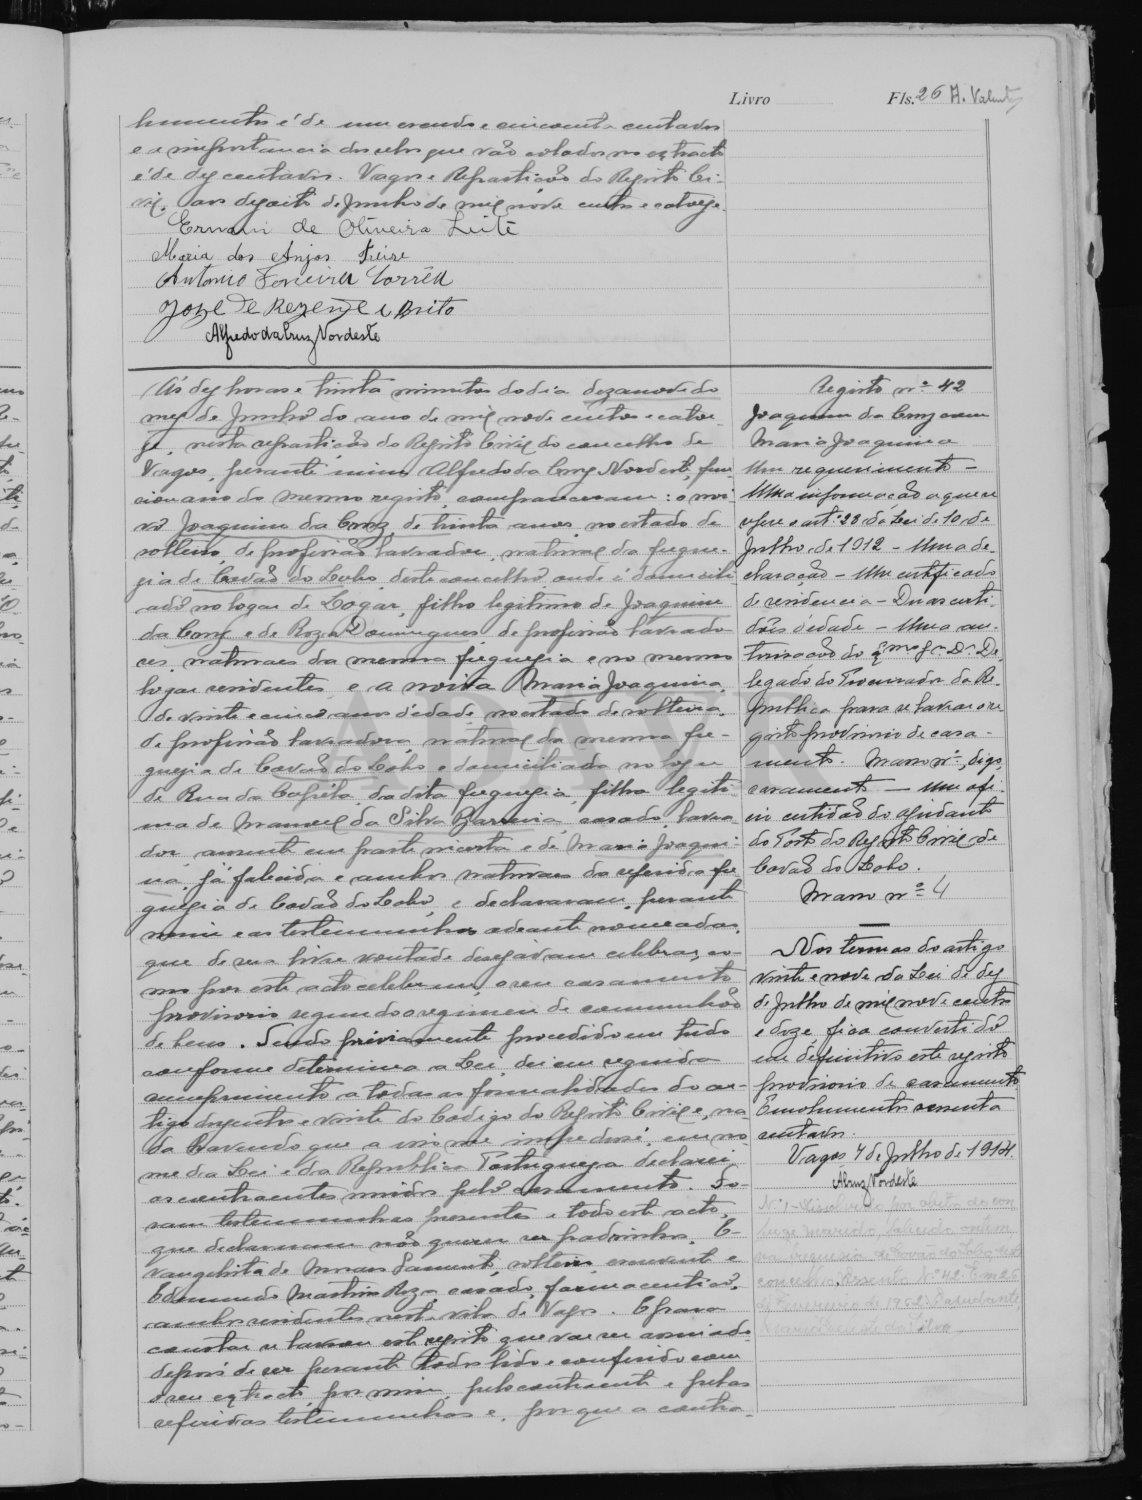 Livro Fls. 26 A. Valente
lumentos é de um escudo e cincoenta centavos
e a importancia dos selos que vão colados no extracto
é de dez centavos. Vagos e Repartição do Registo Ci-
vil, aos dezoito de Junho de mil nove centos e catorze.
Ernani de Oliveira Leite
Maria dos Anjos Freire
Antonio Ferreira Corrêa
José de Rezende e Brito
Alfredo da Cruz Nordeste
Ás dez horas e trinta minutos do dia dezanove do
mez de Junho do ano de mil nove centos e cator-
ze, nesta repartição do Registo Civil do concelho de
Vagos, perante mim Alfredo da Cruz Nordeste, fun-
cionario do mesmo registo, compareceram: o noi-
vo Joaquim da Cruz, de trinta anos, no estado de
solteiro, de profissão lavrador, natural da fregue-
zia de Covão do Lobo, deste concelho, onde é domicili-
ado no logar de Logar, filho legitimo de Joaquim
da Cruz e de Roza Domingues, de profissão lavrado-
res, naturaes da mesma freguezia e no mesmo
logar residentes, e a noiva Maria Joaquina,
de vinte e cinco anos d'edade, no estado de solteira,
de profissão lavradora, natural da mesma fre-
guezia de Covão do Lobo e domiciliada no logar
de Rua da Capéla, da dita freguezia, filha legiti-
ma de Manuel da Silva, casado, lavra-
dor, ausente em parte incerta e de Maria Joaqui-
na, já falecida e ambos naturaes da referida fre-
guezia de Covão do Lobo, e declararam, perante
mim e as testemunhas adeante nomeadas,
que de sua livre vontade desejavam celebrar, co-
mo por este acto celebram, o seu casamento
provisorio segundo o regimen de comunhão
de bens. Sendo préviamente procedido em tudo
conforme determina a Lei, dei em seguida
cumprimento a todas as formalidades do ar-
tigo duzentos e vinte do Codigo do Registo Civil e, na-
da havendo que a isso me impedisse, em no-
me da Lei e da Republica Portugueza declarei
os contraentes unidos pelo casamento. Fo-
ram testemunhas presentes a todo este acto,
que declararam não querer ser padrinhos, E-
vangelista de Moraes Sarmento, solteiro, e
Edmundo Martins Roza, casado, farmaceutico,
ambos residentes nesta vila de Vagos. E para
constar se lavrou este registo que vae ser assinado
depois de ser perante todos lido e conferido com
o seu extracto, por mim, pelo contraente e pelas
referidas testemunhas e, porque a contra-
Registo nº 42
Joaquim da Cruz com
Maria Joaquina
Um requerimento —
Uma informação a que se
refere o art.º 28 da Lei de 10 de
Julho de 1912 — Uma de-
claração — Um certificado
de residencia — Duas certi-
dões d'edade — Uma au-
torisação do Exmo Sr. Dr. De-
legado do Procurador da Re-
publica para se lavrar o re-
gisto provisorio de casa-
mento. Masso nº, digo,
casamento — Um ofi-
cio certidão do ajudante
do Posto do Registo Civil de
Covão do Lobo.
Masso nº 4
Nos termos do artigo
vinte e nove da Lei de dez
de Julho de mil nove centos
e doze, fica convertido
em definitivo este registo
provisorio de casamento
Emolumentos sessenta
centavos.
Vagos 4 de Julho de 1914.
A Cruz Nordeste
Nº 1 - Dissolvido por obito do con-
juge marido, falecido ontem
na freguesia de Covão do Lobo, deste
concelho. Assento Nº 42. Em 26
de Fevereiro de 1952. O ajudante,
da Silva